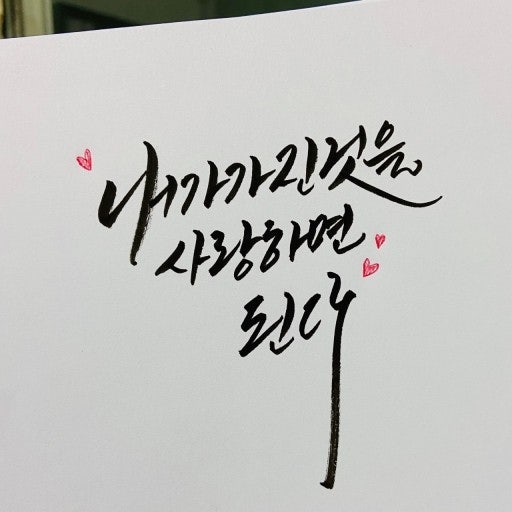 내가가진것을
사랑하면
된다